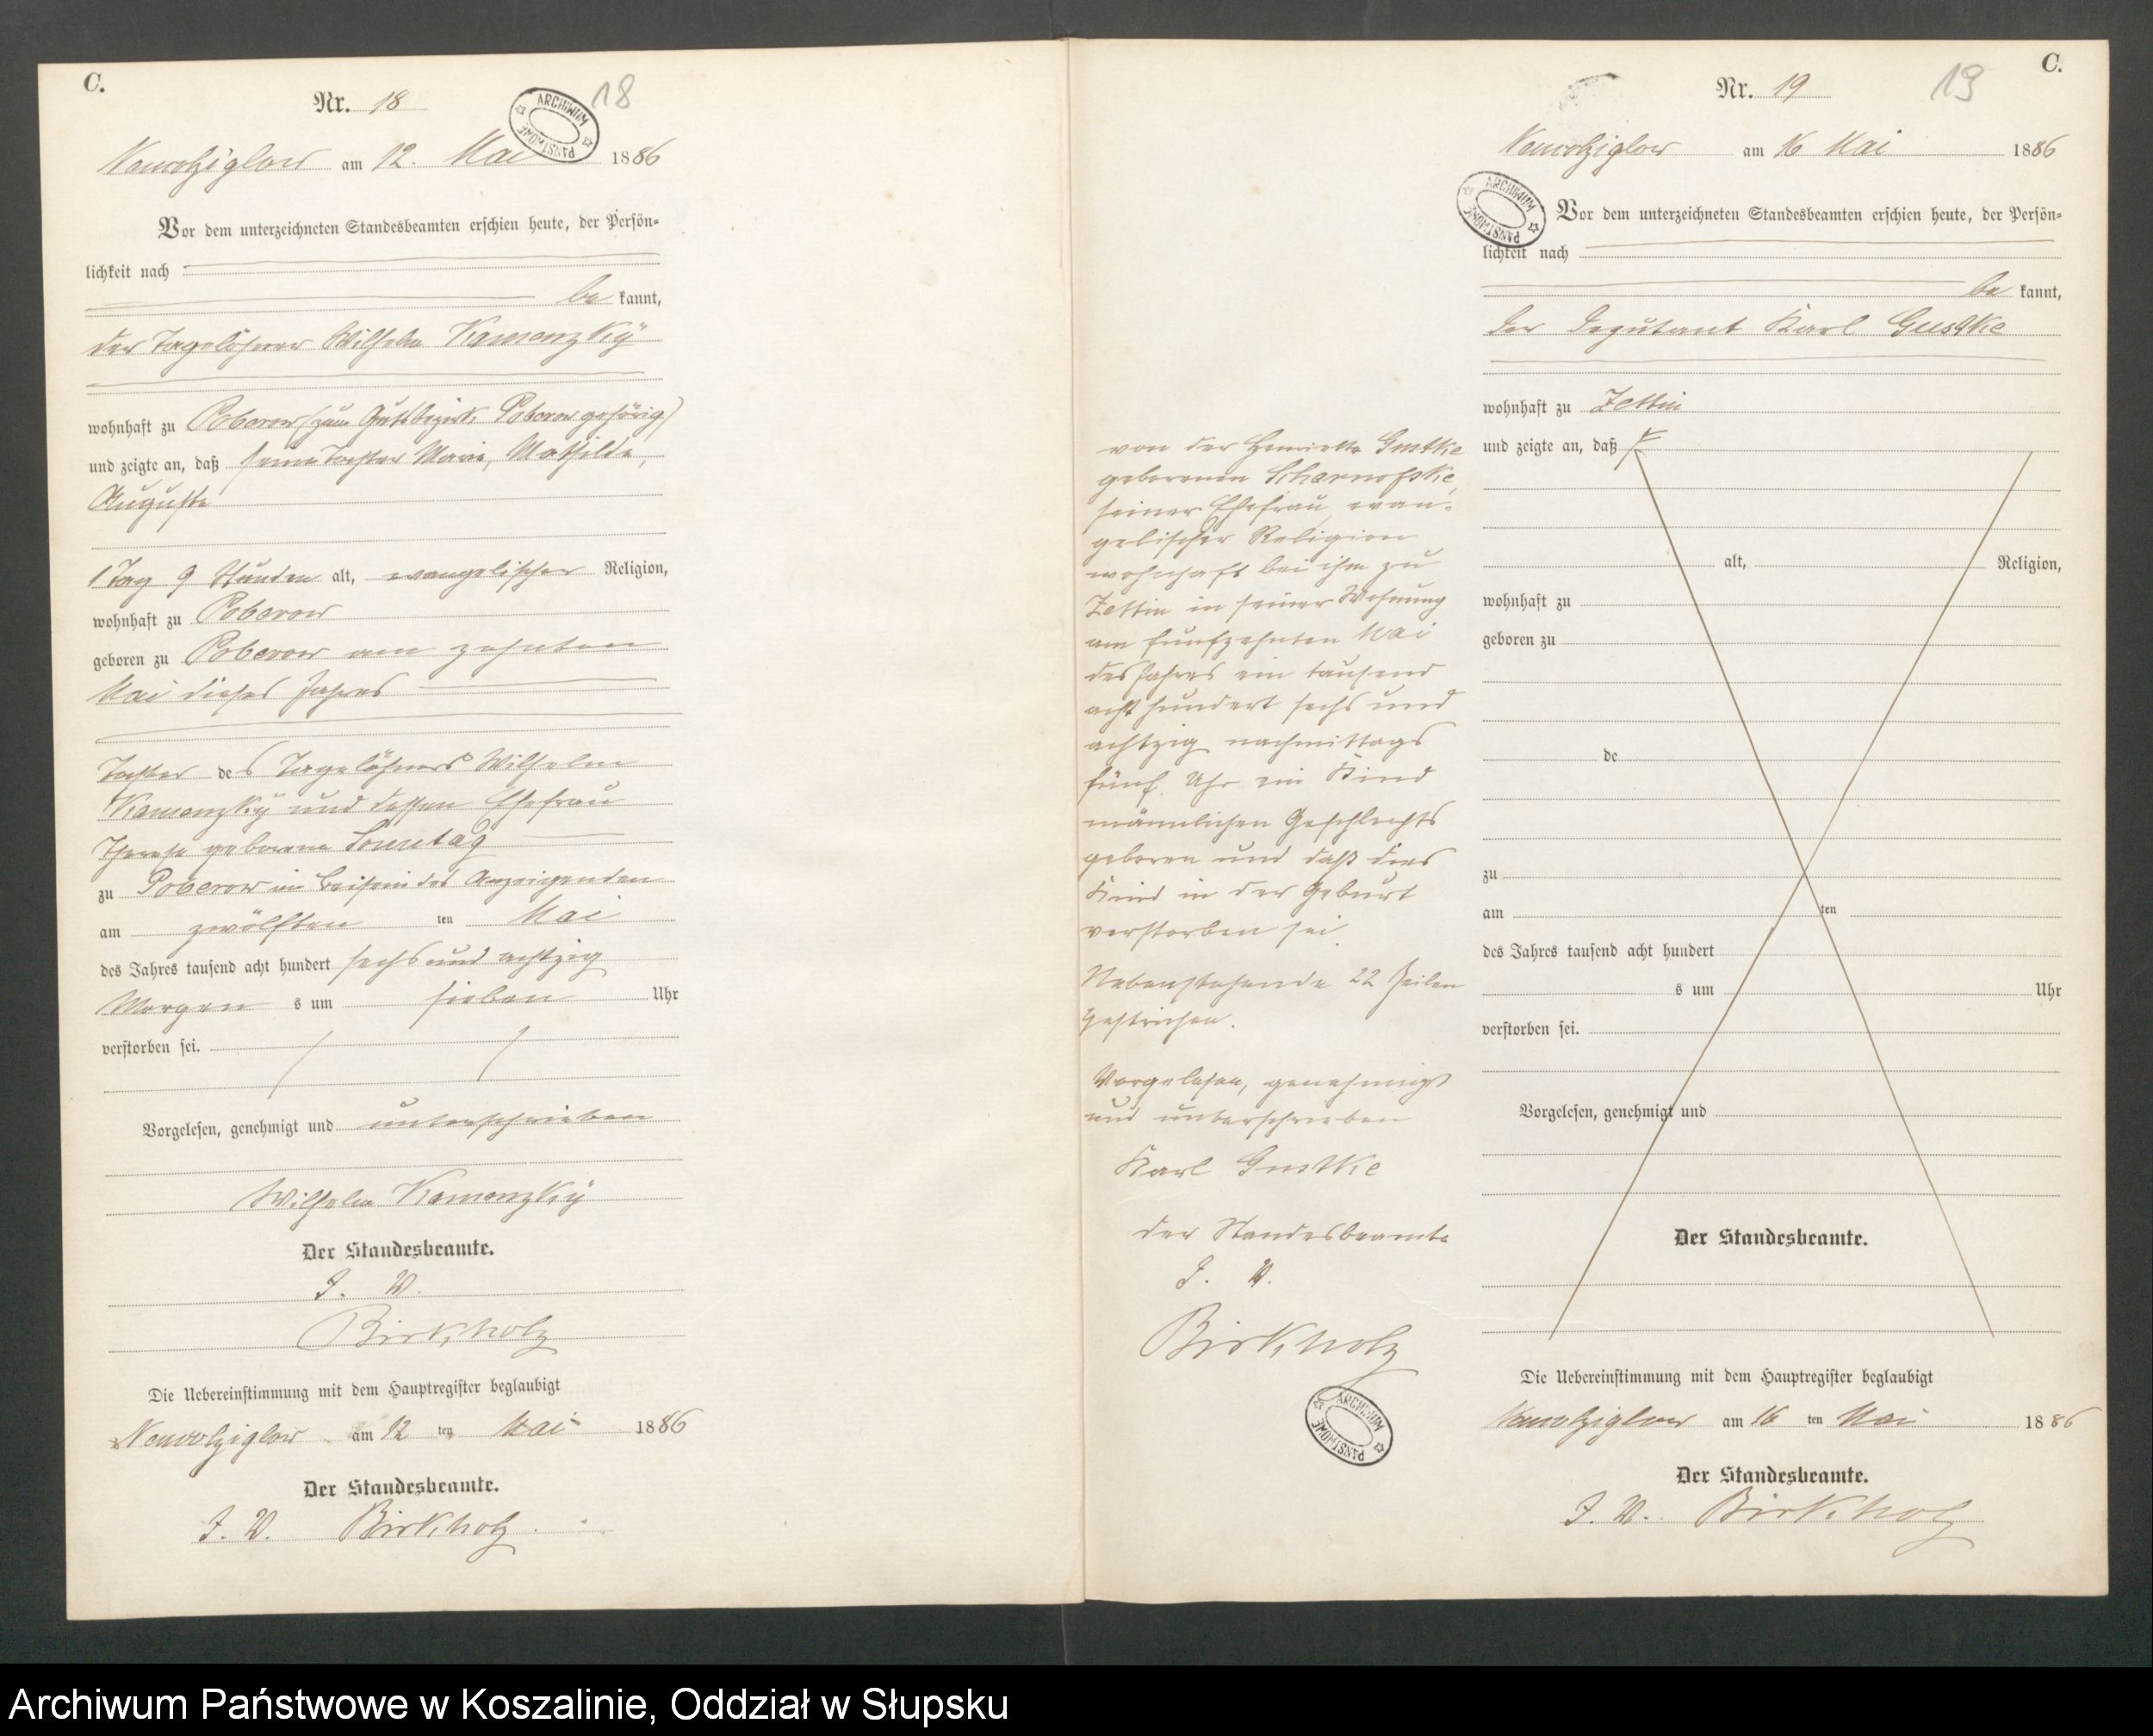 C.
Nr. 18
18
ARCHIWUM PAŃSTWOWE
am 12. Mai 1886
Vor dem unterzeichneten Standesbeamten erschien heute, der Persön-
lichkeit nach
be kannt,
der Tagelöhner Wilhelm Kamenzky
wohnhaft zu Poberow (zum Gutsbezirk Poberow gehörig)
und zeigte an, daß seine Tochter Marie, Mathilde,
Auguste
1 Tag 9 Stunden alt, evangelischer Religion,
wohnhaft zu Poberow
geboren zu Poberow am zehnten
Mai dieses Jahres
Tochter des Tagelöhners Wilhelm
Kamenzky und dessen Ehefrau
Therese geborene Sonntag
zu Poberow in Beisein des Anzeigenden
am zwölften ten Mai
des Jahres tausend acht hundert sechs und achtzig
Morgen s um sieben Uhr
verstorben sei.
Vorgelesen, genehmigt und unterschrieben
Wilhelm Kamenzky
Der Standesbeamte.
J. V.
Birkholz
Die Uebereinstimmung mit dem Hauptregister beglaubigt
am 12 ten Mai 1886
Der Standesbeamte.
J. V. Birkholz.
C.
Nr. 19
19
am 16 Mai 1886
ARCHIWUM PAŃSTWOWE
Vor dem unterzeichneten Standesbeamten erschien heute, der Persön-
lichkeit nach
be kannt,
der Deputant Karl Gustke
wohnhaft zu Zettin
und zeigte an, daß
von der Henriette Gustke
geborenen Scharnofske,
seiner Ehefrau, evan-
gelischer Religion
wohnhaft bei ihm zu
Zettin in seiner Wohnung
am fünfzehnten Mai
des Jahres ein tausend
acht hundert sechs und
achtzig nachmittags
fünf Uhr ein Kind
männlichen Geschlechts
geboren und daß dies
Kind in der Geburt
verstorben sei.
Nebenstehende 22 Zeilen
gestrichen.
Vorgelesen, genehmigt
und unterschrieben
Karl Gustke
der Standesbeamte
J. V.
Birkholz
ARCHIWUM PAŃSTWOWE
alt, Religion,
wohnhaft zu
geboren zu
de
zu
am ten
des Jahres tausend acht hundert
s um Uhr
verstorben sei.
Vorgelesen, genehmigt und
Der Standesbeamte.
Die Uebereinstimmung mit dem Hauptregister beglaubigt
am 16 ten Mai 1886
Der Standesbeamte.
J. V. Birkholz
Archiwum Państwowe w Koszalinie, Oddział w Słupsku